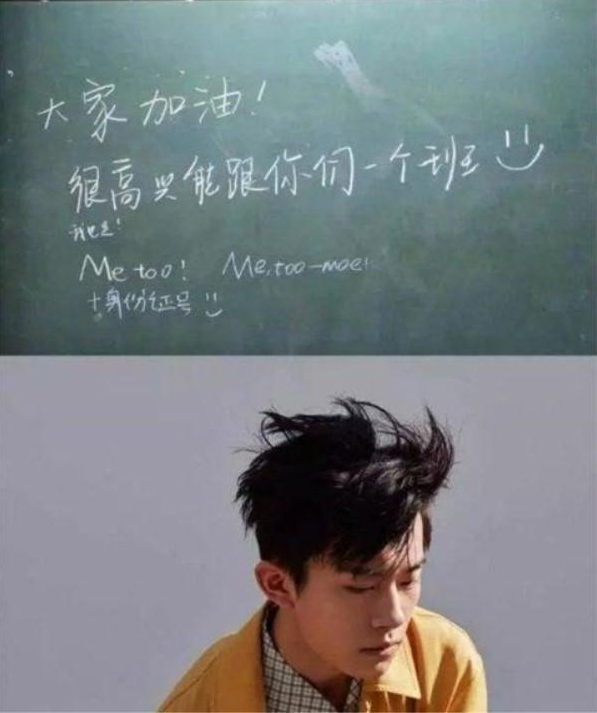 大家加油!
很高兴能跟你们一个班
我也是!
Me too! Me, too-moe!
+身份证号